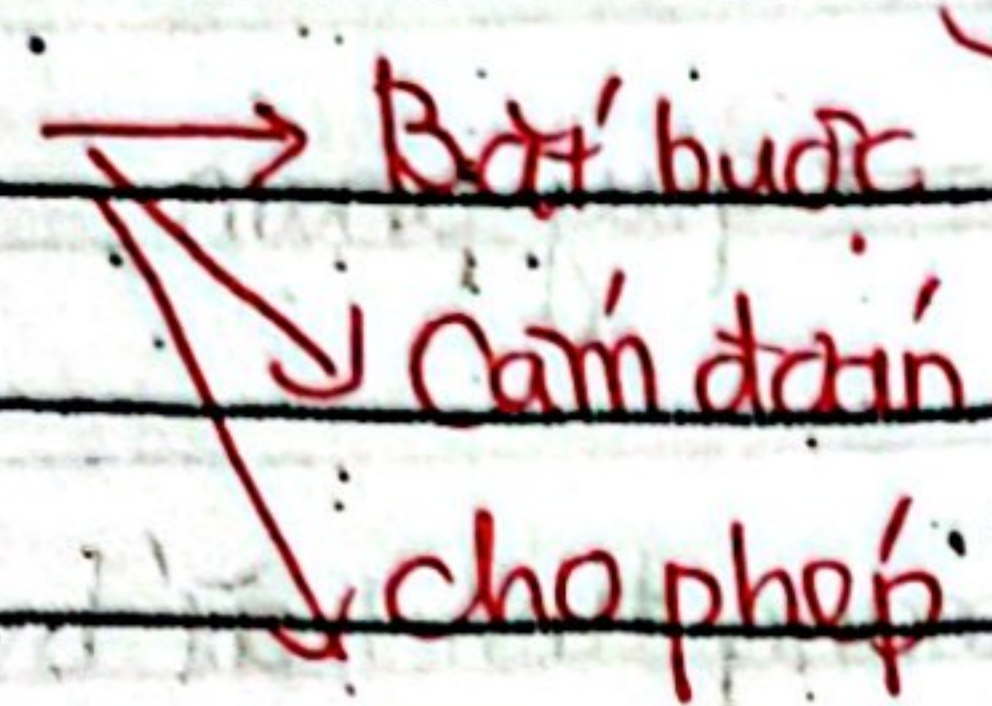 → Bắt buộc
Cấm đoán
cho phép